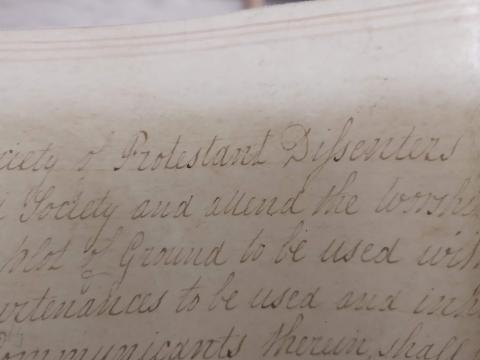 ciety of Protestant Dißenters
Society and attend the Worshi
plot of Ground to be used with
urtenances to be used and inh
ommunicants therein shall